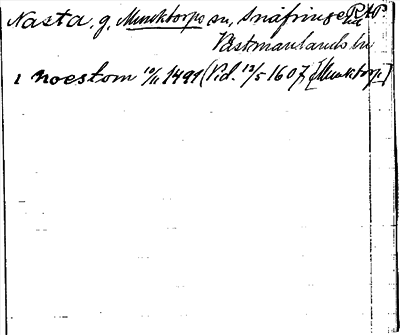 Nasta, g. Munktorps sn, Snäfringe hd RAP.
Västmanlands ln
i noestom 10/11 1491 (Vid. 13/5 1607) [Munktorp]